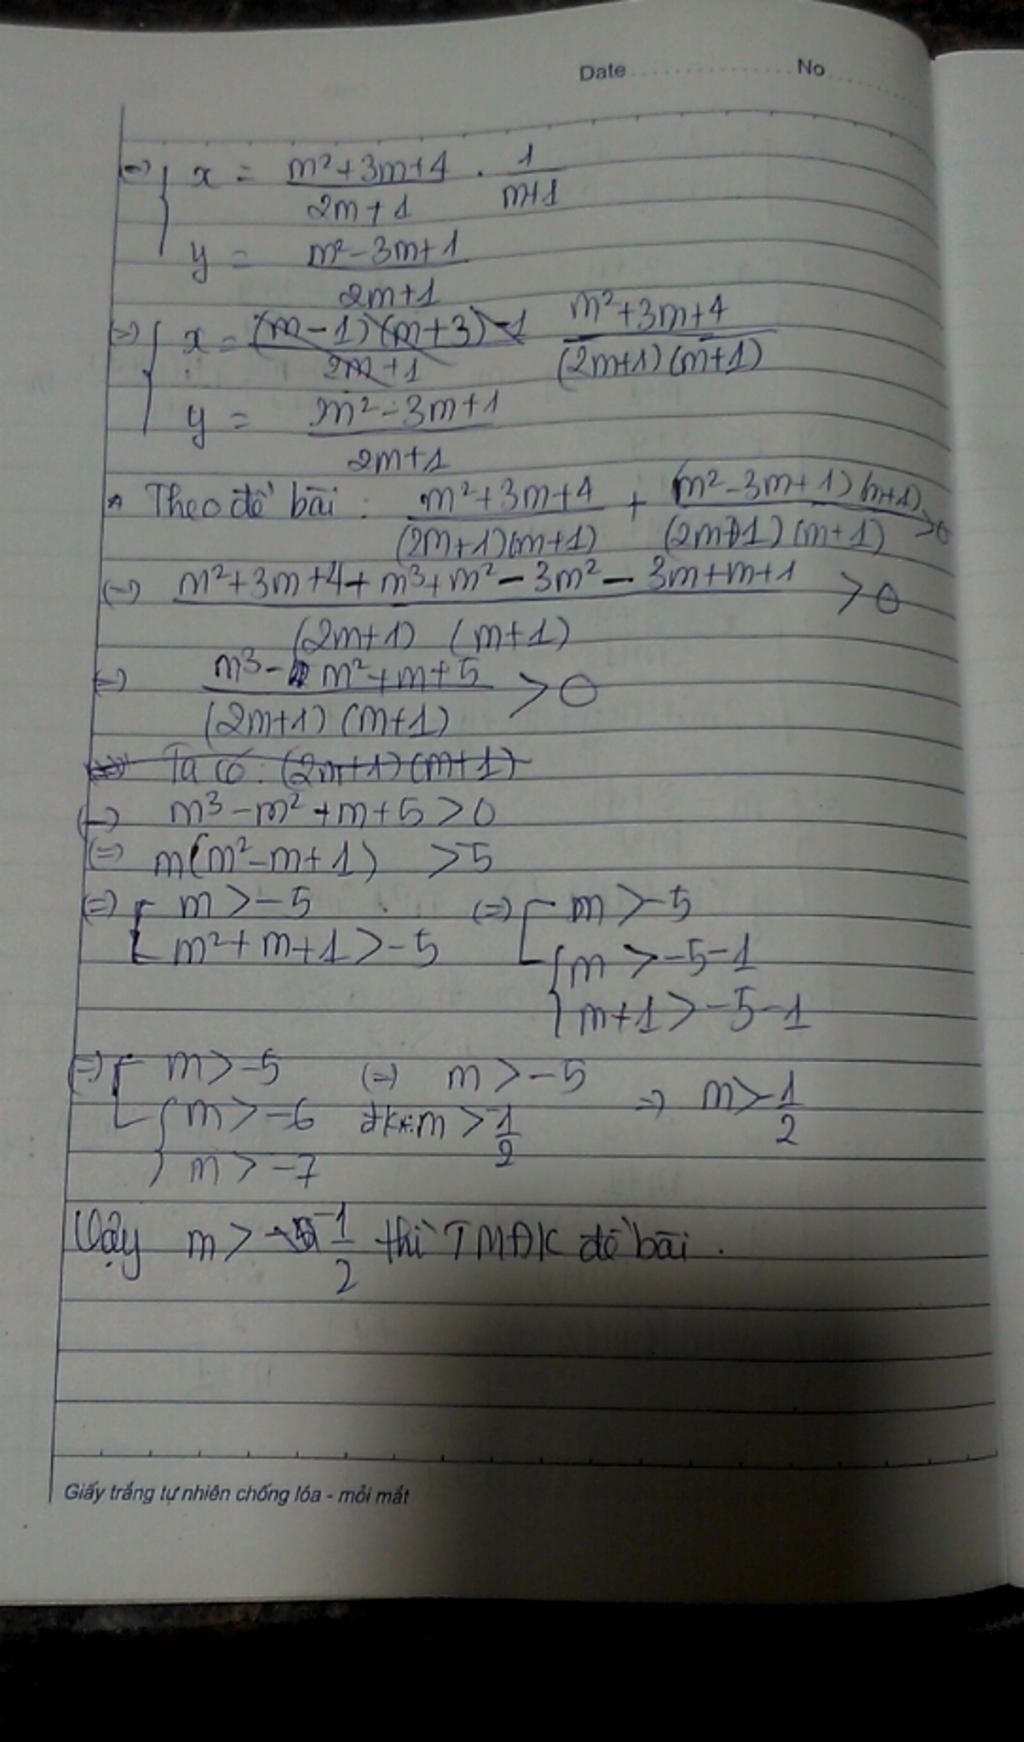 Date No
(=) { x = (m²+3m+4)/(2m+1) . 1/(m+1)
y = (m²-3m+1)/(2m+1)
(=) { x = (m-1)(m+3)-1/(2m+1) (m²+3m+4)/((2m+1)(m+1))
y = (m²-3m+1)/(2m+1)
* Theo đề bài : (m²+3m+4)/((2m+1)(m+1)) + (m²-3m+1)(m+1)/((2m+1)(m+1)) >0
(=) (m²+3m+4+m³+m²-3m²-3m+m+1)/((2m+1)(m+1)) >0
(=) (m³-m²+m+5)/((2m+1)(m+1)) >0
Ta có : (2m+1)(m+1)
(=) m³-m²+m+5>0
(=) m(m²-m+1) >5
(=) [ m>-5 (=) [ m>-5
m²+m+1>-5 { m >-5-1
m+1>-5-1
(=) [ m>-5 (=) m>-5 => m>-1/2
{ m>-6 đk: m>-1/2
m>-7
Vậy m> -1/2 thì TMĐK đề bài .
Giấy trắng tự nhiên chống lóa - mỏi mắt